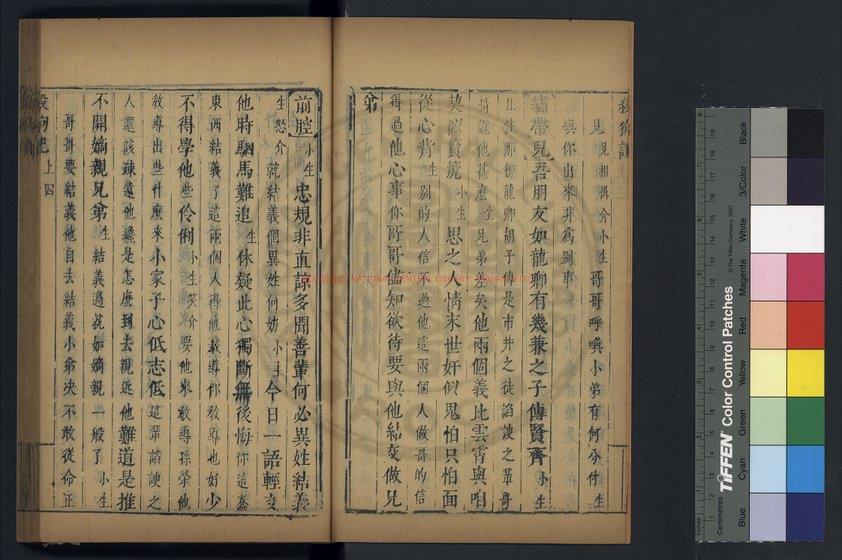 見相揖介小生哥哥呼喚小弟有何分付生
與你出來非爲別事
繡帶兒吾朋友如龍卿有幾兼之子傳賢齊小生
且住那柳龍卿胡子傳是市井之徒諂諛之輩哥
哥道他甚麽生兄弟差矣他兩個義比雲霄與咱
契似篔篪小生思之人情末世奸似鬼怕只怕面
從心背生别的人信不過他這兩個人做哥的信
得過他心事你哥哥儘知欲待要與他結交做兄
弟
前腔小生忠規非直諒多聞善輩何必異姓結義
生怒介就結義個異姓何妨小生今日一語輕交
他時駟馬難追生休疑此心獨斷無後悔你這蠢
東西結義了這兩個人得他教導你教導也好少
不得學他些伶俐小生笑介要他來教導孫榮他
教導出些什麽來小家子心低志低這輩諂諛之
人還該疎遠他纔是怎麽到去親近他難道是推
不開嫡親兄弟生結義過就如嫡親一般了小生
哥哥要結義他自去結義小弟决不敢從命正
殺狗記 上 四
TIFFEN Color Control Patches
© The Tiffen Company, 2007
Centimetres
Inches
Blue
Cyan
Green
Yellow
Red
Magenta
White
3/Color
Black